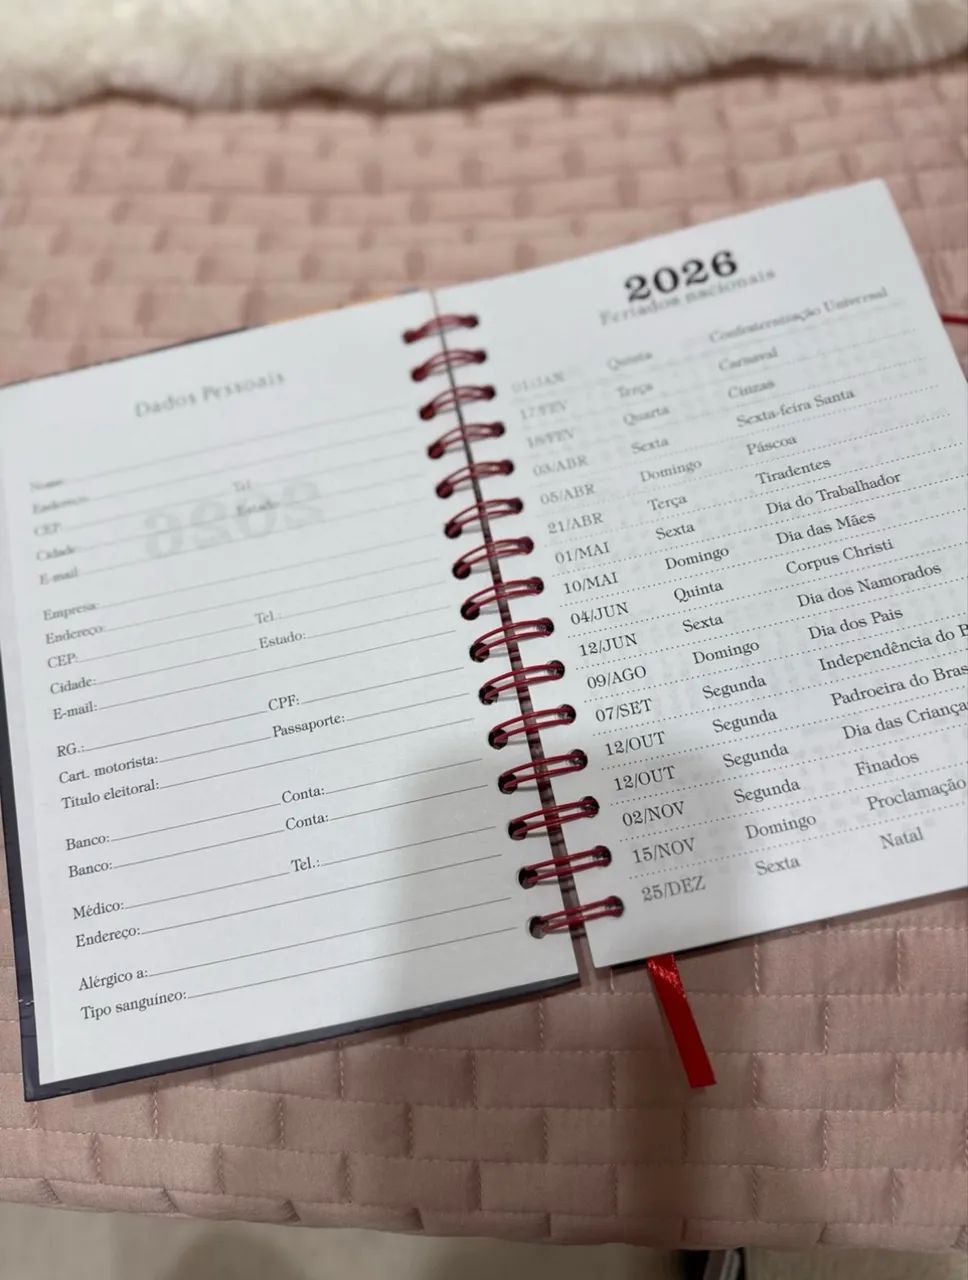 Dados Pessoais
Nome:
Endereço:
CEP: Tel
Cidade: Estado:
E-mail
Empresa:
Endereço:
CEP: Tel.:
Cidade: Estado:
E-mail:
RG.: CPF:
Cart. motorista: Passaporte:
Título eleitoral:
Banco: Conta:
Banco: Conta:
Médico: Tel.:
Endereço:
Alérgico a:
Tipo sanguíneo:
2026
Feriados nacionais
01/JAN Quinta Confraternização Universal
17/FEV Terça Carnaval
18/FEV Quarta Cinzas
03/ABR Sexta Sexta-feira Santa
05/ABR Domingo Páscoa
21/ABR Terça Tiradentes
01/MAI Sexta Dia do Trabalhador
10/MAI Domingo Dia das Mães
04/JUN Quinta Corpus Christi
12/JUN Sexta Dia dos Namorados
09/AGO Domingo Dia dos Pais
07/SET Segunda Independência do B
12/OUT Segunda Padroeira do Bras
12/OUT Segunda Dia das Criança
02/NOV Segunda Finados
15/NOV Domingo Proclamação
25/DEZ Sexta Natal